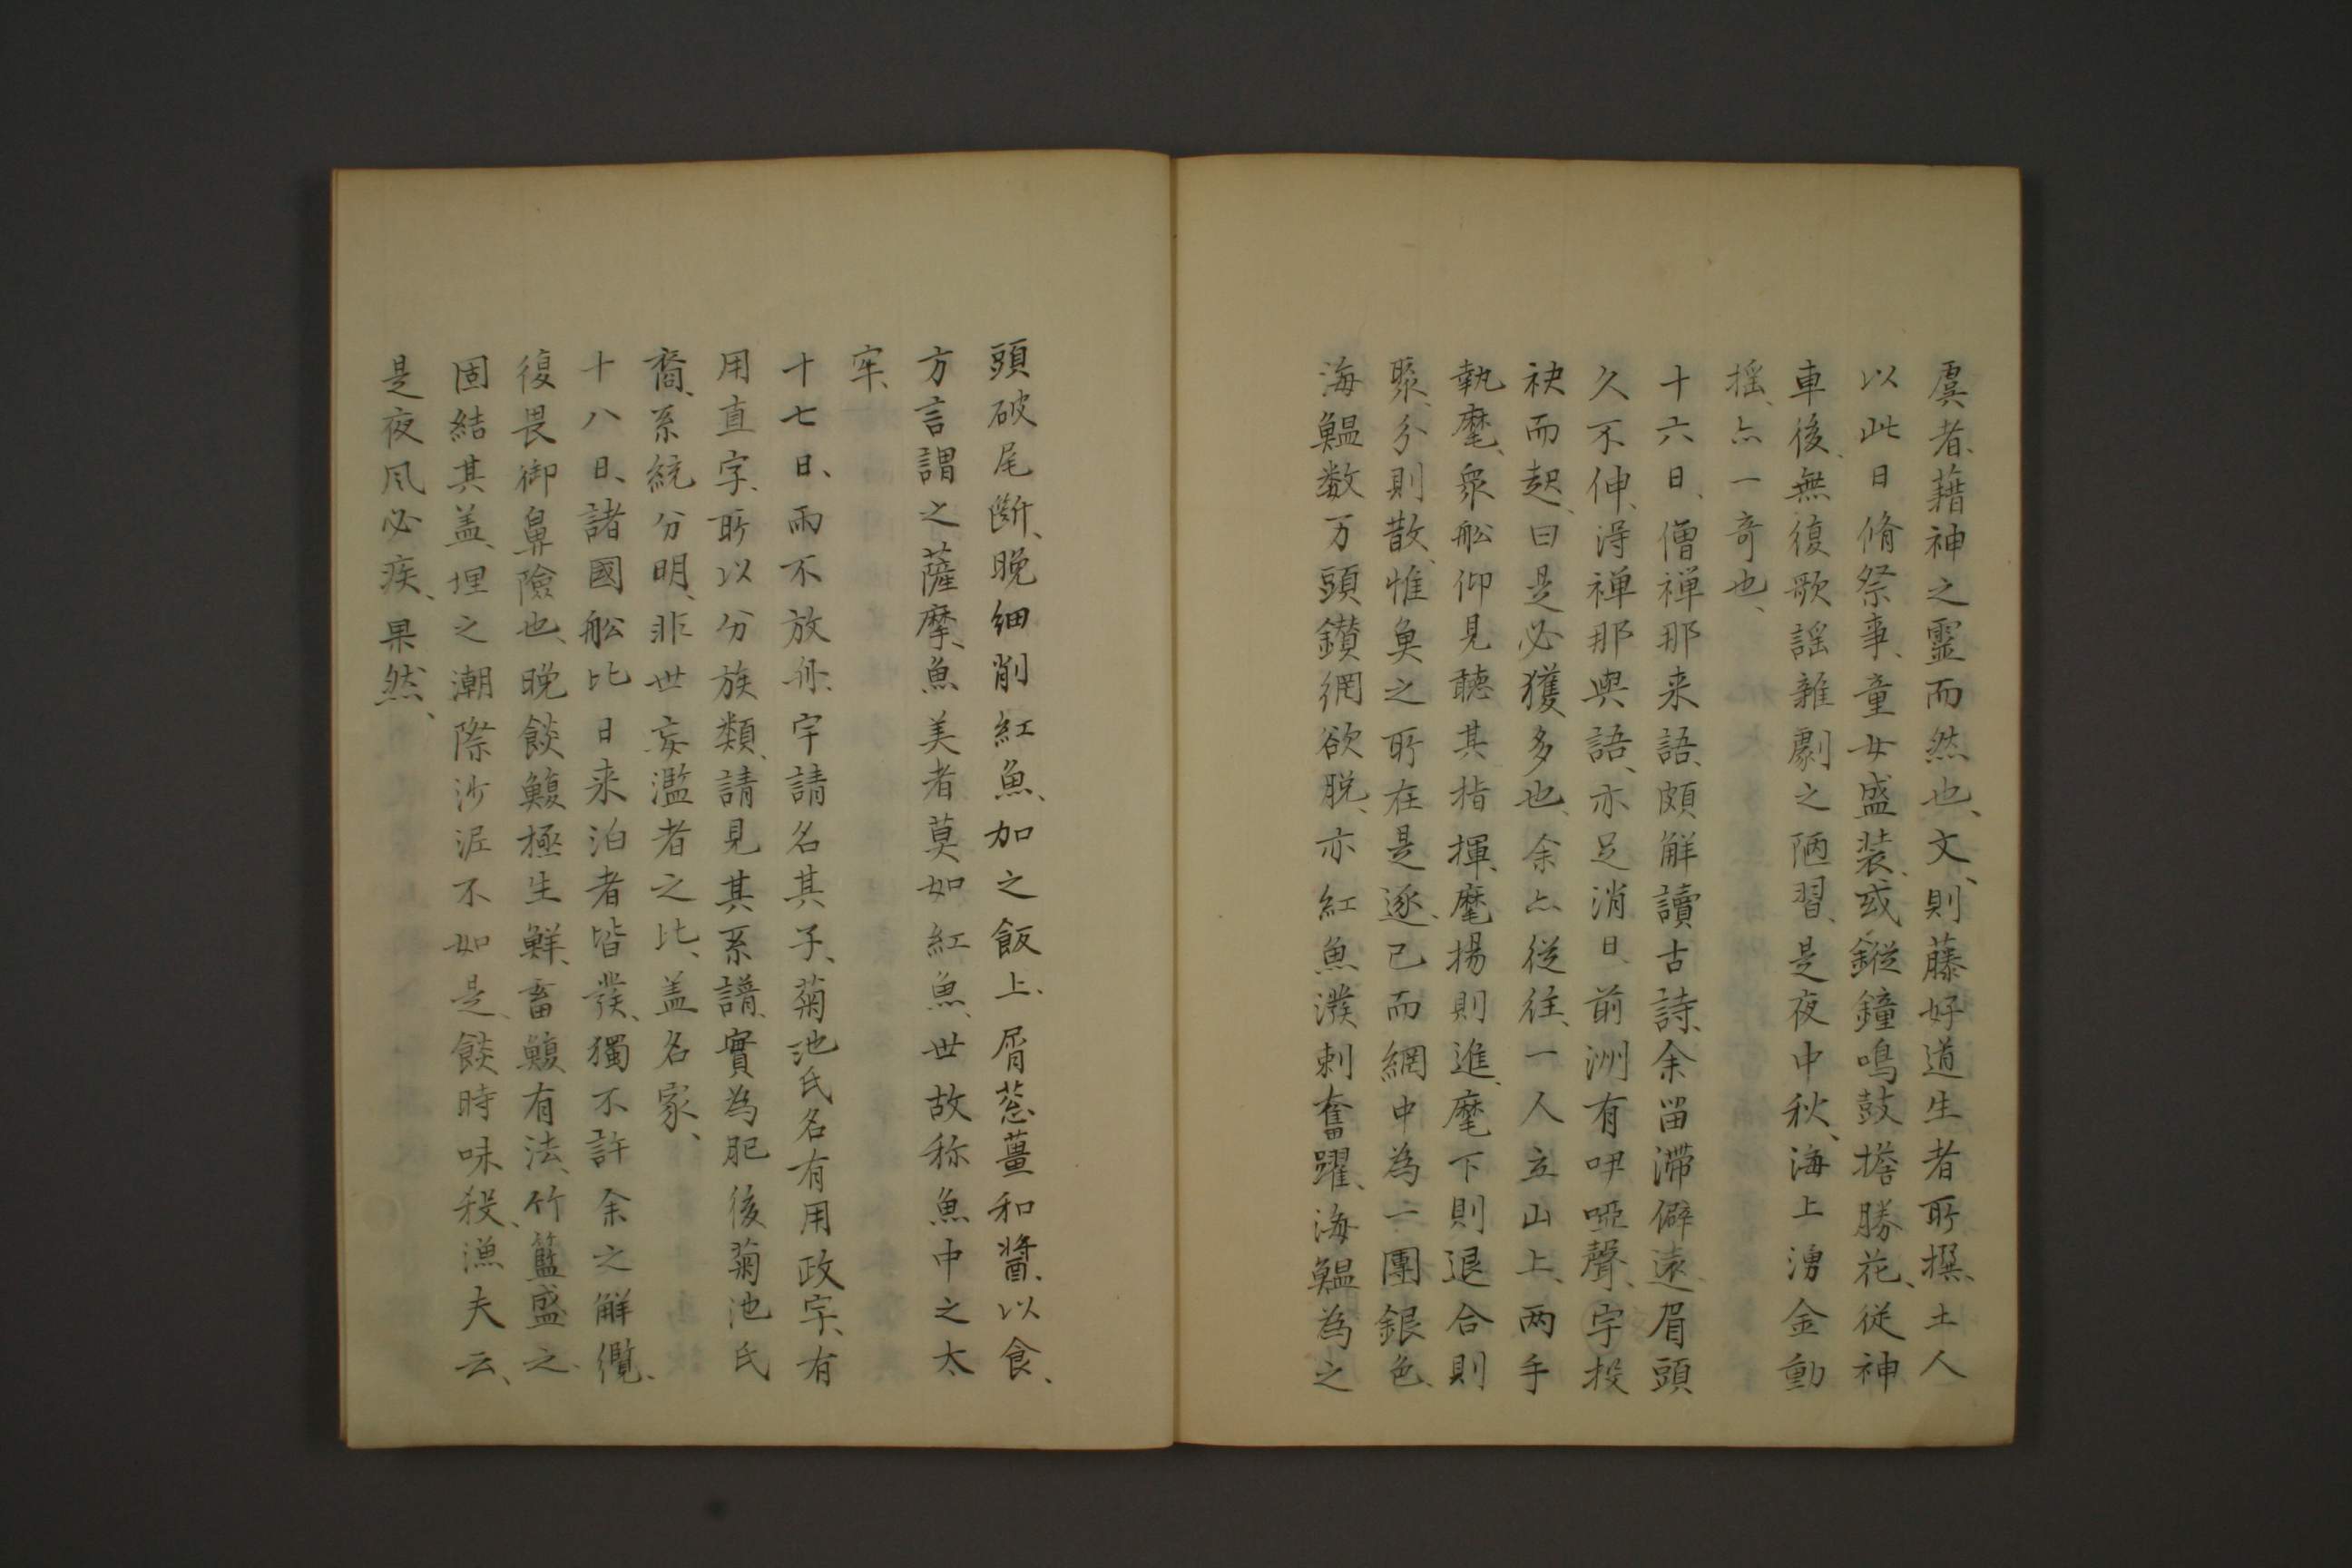 虞者、藉神之霊而然也、文、則藤好道生者所撰、土人
以此日脩祭事、童女盛装、或鏦鐘鳴鼓、擔勝花、従神
車後、無復歌謡雑劇之陋習、是夜中秋、海上湧金動
揺、亦一奇也、
十六日、僧禅那来語、頗解讀古詩、余畄滞僻遠、眉頭
久不伸、得禅那與語、亦足消日、前洲有咿啞聲、宇投
袂而起、曰是必獲多也、余亦従往、一人立山上、両手
執麾、衆舩仰見聴其指揮、麾揚則進、麾下則退、合則
聚、分則散、惟魚之所在是逐、已而網中為一團銀色、
海鰮数万頭鑚網欲脱、亦紅魚溌刺奮躍、海鰮為之
頭破尾断、晩細削紅魚、加之飯上、屑葱薑和醬、以食、
方言謂之薩摩、魚美者莫如紅魚、世故称魚中之太
牢、
十七日、雨不放舟、宇請名其子、菊池氏名有用政字、有
用直字、所以分族類、請見其系譜、實為肥後菊池氏
裔、系統分明、非世妄濫者之比、盖名家、
十八日、諸國舩比日来泊者皆發、獨不許余之解纜、
復畏御鼻険也、晩餤鰒極生鮮、畜鰒有法、竹籃盛之、
固結其盖、埋之潮際沙泥、不如是、餤時味殺、漁夫云、
是夜风必疾、果然、